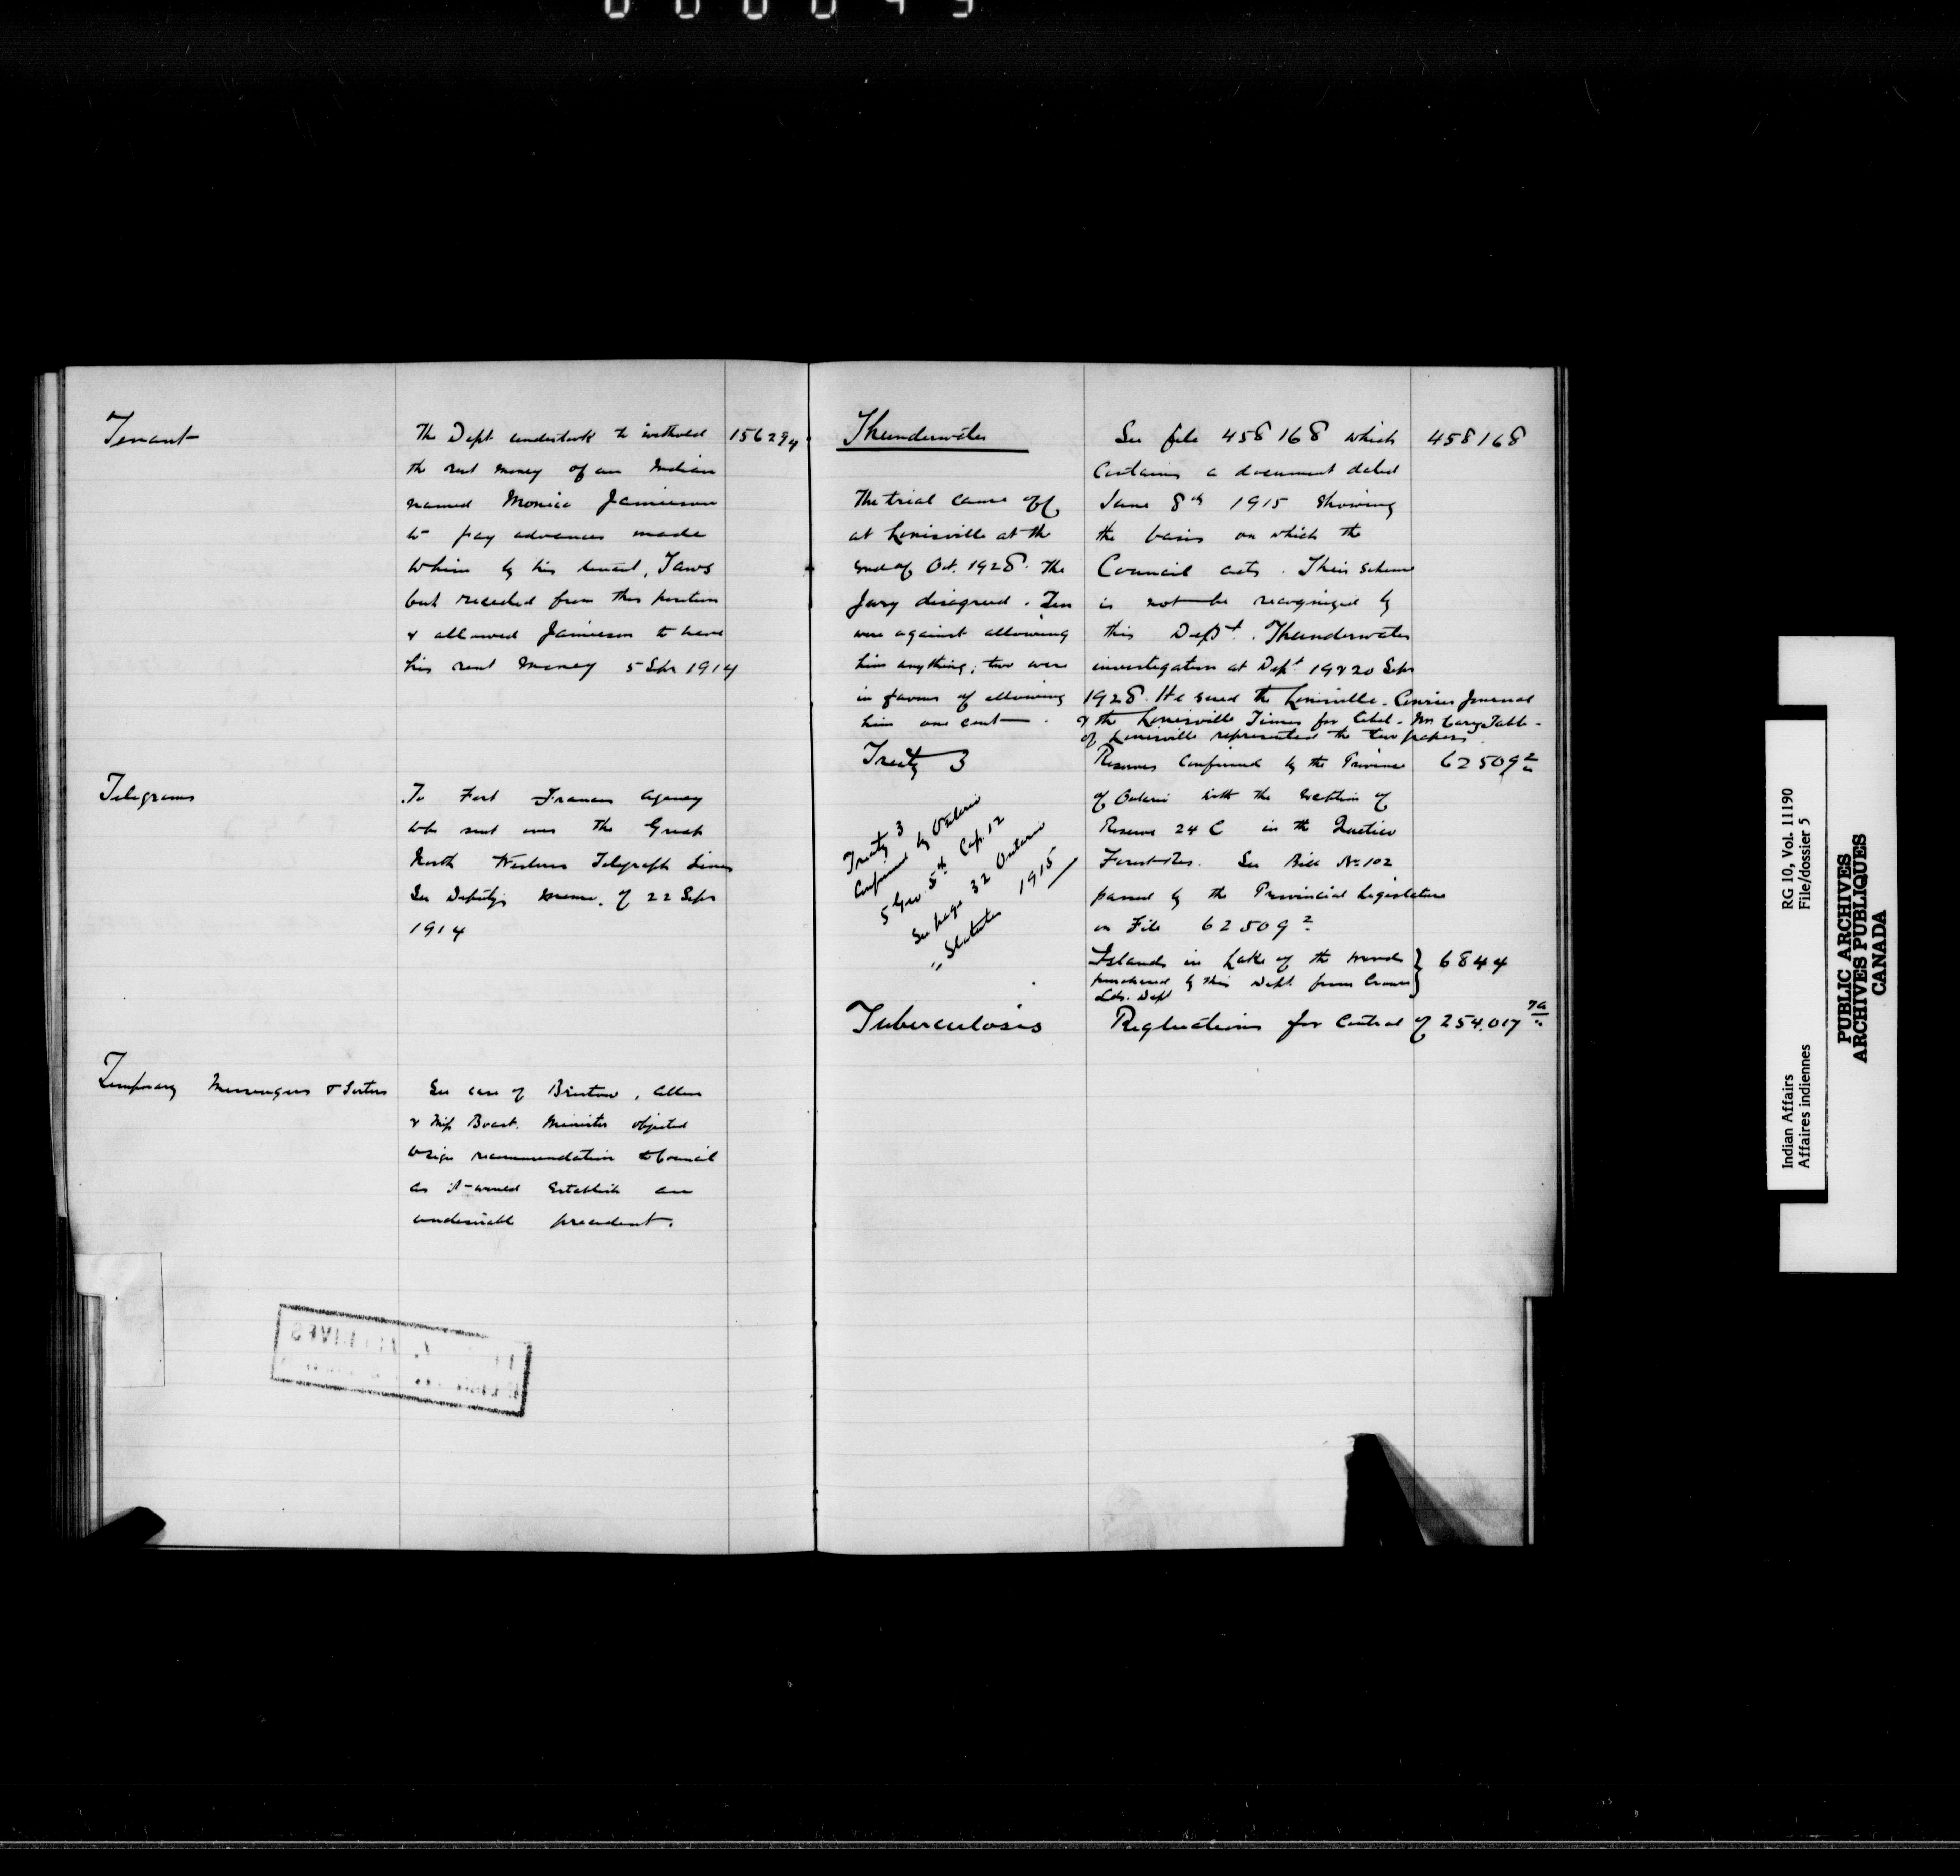 Tenant
The Dept undertook to withold 156294
the rent money of an Indian
named Monica Jamieson
to pay advances made
to him by his tenant, Jaws
but receded from this position
& allowed Jamieson to have
his rent money 5 Sepr 1914
Telegrams
To Fort Frances Agency
to be sent over The Great
North Western Telegraph Lines
See Deputy's memo. of 22 Sepr
1914
Temporary Messengers & Sorters
See case of Bristow, Allen
& Miss Boast. Minister objected
to sign recommendation to Council
as it would establish an
undesirable precedent.
Thunderwater
The trial came off
at Louisville at the
end of Oct. 1928. The
Jury disagreed. Ten
were against allowing
him anything; two were
in favour of allowing
him one cent.
See file 458168 which 458168
Contains a document dated
June 8th 1915 showing
the basis on which the
Council acts. Their scheme
is not to be recognized by
this Dept. Thunderwater
investigation at Dept 19 & 20 Sepr
1928. He sued the Louisville Courier Journal
& the Louisville Times for libel. Mr Cary Tabb
of Louisville represented the two papers.
Treaty 3
Treaty 3
Confirmed by Ontario
5 Geo. 5th Cap 12
See page 32 Ontario
" Statutes 1915
Reserves Confirmed by the Province 62509 2
of Ontario with the exception of
Reserve 24 C in the Quetico
Forest Res. See Bill No 102
passed by the Provincial Legislature
on File 62509 2
Islands in Lake of the Woods } 6844
purchased by this Dept. from Crown
Lds. Dept
Tuberculosis
Regluations for Control of 254.017 7A
RG 10, Vol. 11190
File/dossier 5
Indian Affairs
Affaires indiennes
PUBLIC ARCHIVES
ARCHIVES PUBLIQUES
CANADA